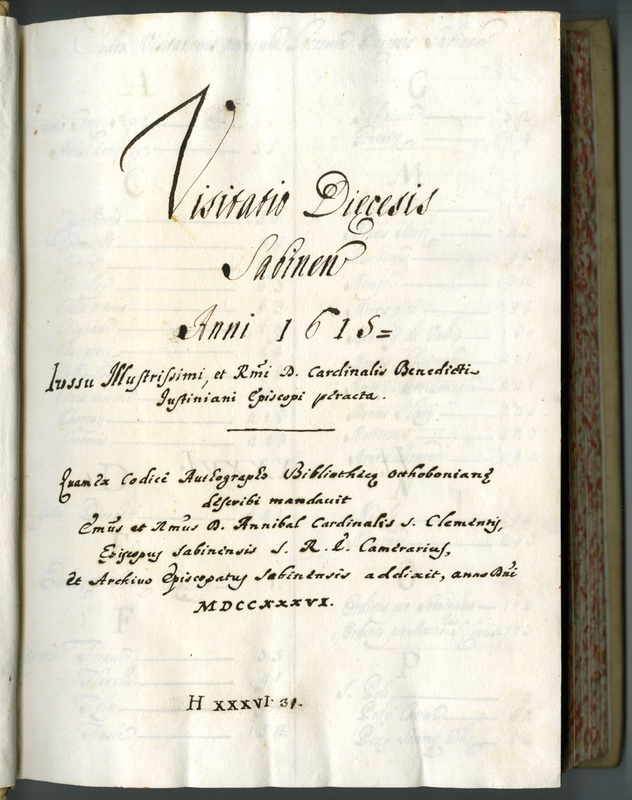 Visitatio Dięcesis
Sabinen
Anni 1615=
Iussu Illustrissimi, et Rmi D. Cardinalis Benedicti
Iustiniani Episcopi peracta.
Quam ex Codice Autographo Bibliothecę Otthobonianę
describi mandavit
Emus et Rmus D. Annibal Cardinalis S. Clementis,
Episcopus Sabinensis S. R. E. Camerarius,
Et Archivo Episcopatus Sabinensis addixit, anno Dni
MDCCXXXVI.
H XXXVI. 31.